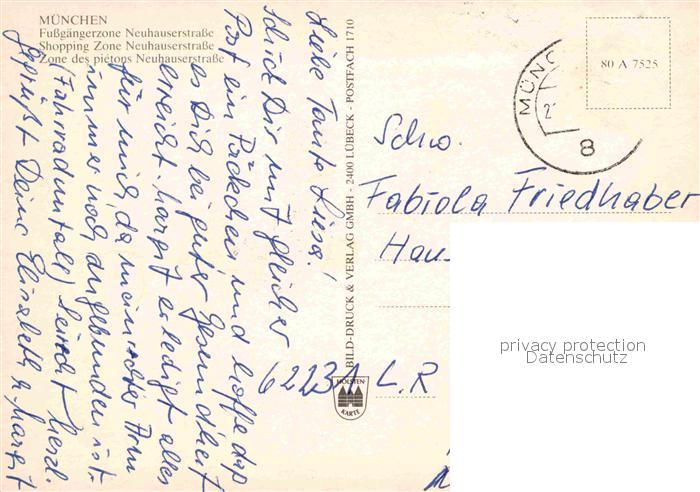 MÜNCHEN
Fußgängerzone Neuhauserstraße
Shopping Zone Neuhauserstraße
Zone des piétons Neuhauserstraße
Liebe Tante Liesa!
Schick Dir mit gleicher
Post ein Päckchen und hoffe daß
es Dich bei guter Gesundheit
erreicht. Margit erledigt alles
für mich, da mein rechter Arm
immer noch angebunden ist.
(Fahrradunfall) Seid herzl.
gegrüßt Deine Elisabeth u. Margit
BILD-DRUCK & VERLAG GMBH - 2400 LÜBECK - POSTFACH 1710
HOLSTEN-
KARTE
80 A 7525
MÜNC
8
Schw.
Fabiola Friedhaber
Haus
6223 L.R
privacy protection
Datenschutz